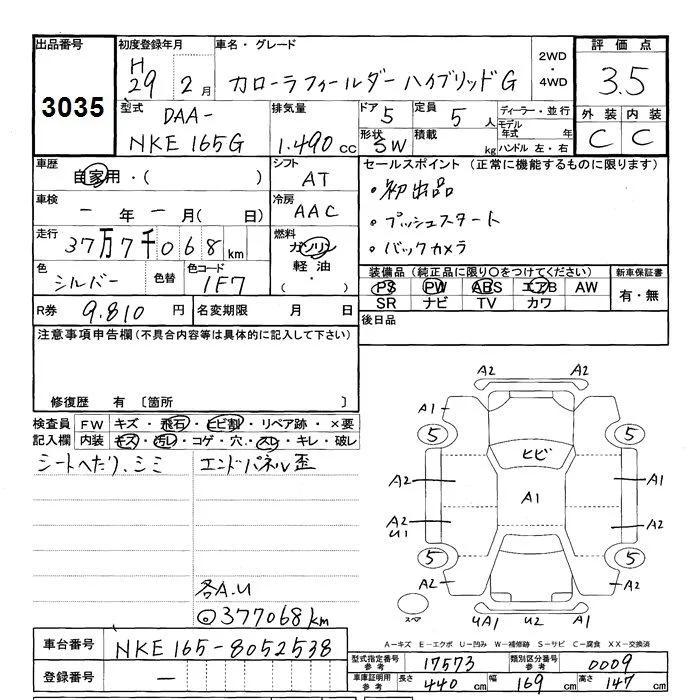 出品番号 初度登録年月 車名・グレード 2WD・4WD 評価点
3035 H29 2月 カローラフィールダー ハイブリッドG 3.5
型式 DAA-NKE165G 排気量 1.490cc ドア 5 定員 5人 ディーラー・並行
形状 SW 積載 kg モデル年式 年 ハンドル 左・右
外装 内装
C C
車歴 自家用・( ) シフト AT
セールスポイント (正常に機能するものに限ります)
・初出品
・プッシュスタート
・バックカメラ
車検 一年一月( 日) 冷房 AAC
走行 37万7千068km 燃料 ガソリン 軽油・( ・ )
色 シルバー 色替 色コード 1F7
装備品(純正品に限り○をつけてください) 新車保証書
PS PW ABS エアB AW 有・無
SR ナビ TV カワ
R券 9.810円 名変期限 月 日
後日品
注意事項申告欄(不具合内容等は具体的に記入して下さい)
修復歴 有〔箇所 〕
検査員記入欄 FW キズ・飛石・ヒビ割・リペア跡・×要
内装 キズ・汚レ・コゲ・穴・スレ・キレ・破レ
シートへたり、シミ エンドパネル歪
各A.U
◎377068km
A2 A2
A1
5 5
ヒビ
A2 A1 A1
A2 U1 A2
5 5
A2 A2
スペア UA1 U2 A1
A-キズ E-エクボ U-凹み W-補修跡 S-サビ C-腐食 XX-交換済
車台番号 NKE165-8052538
登録番号 ー
型式指定番号 参考 17573 類別区分番号 参考 0009
車庫証明用 参考 長さ 440cm 幅 169cm 高さ 147cm